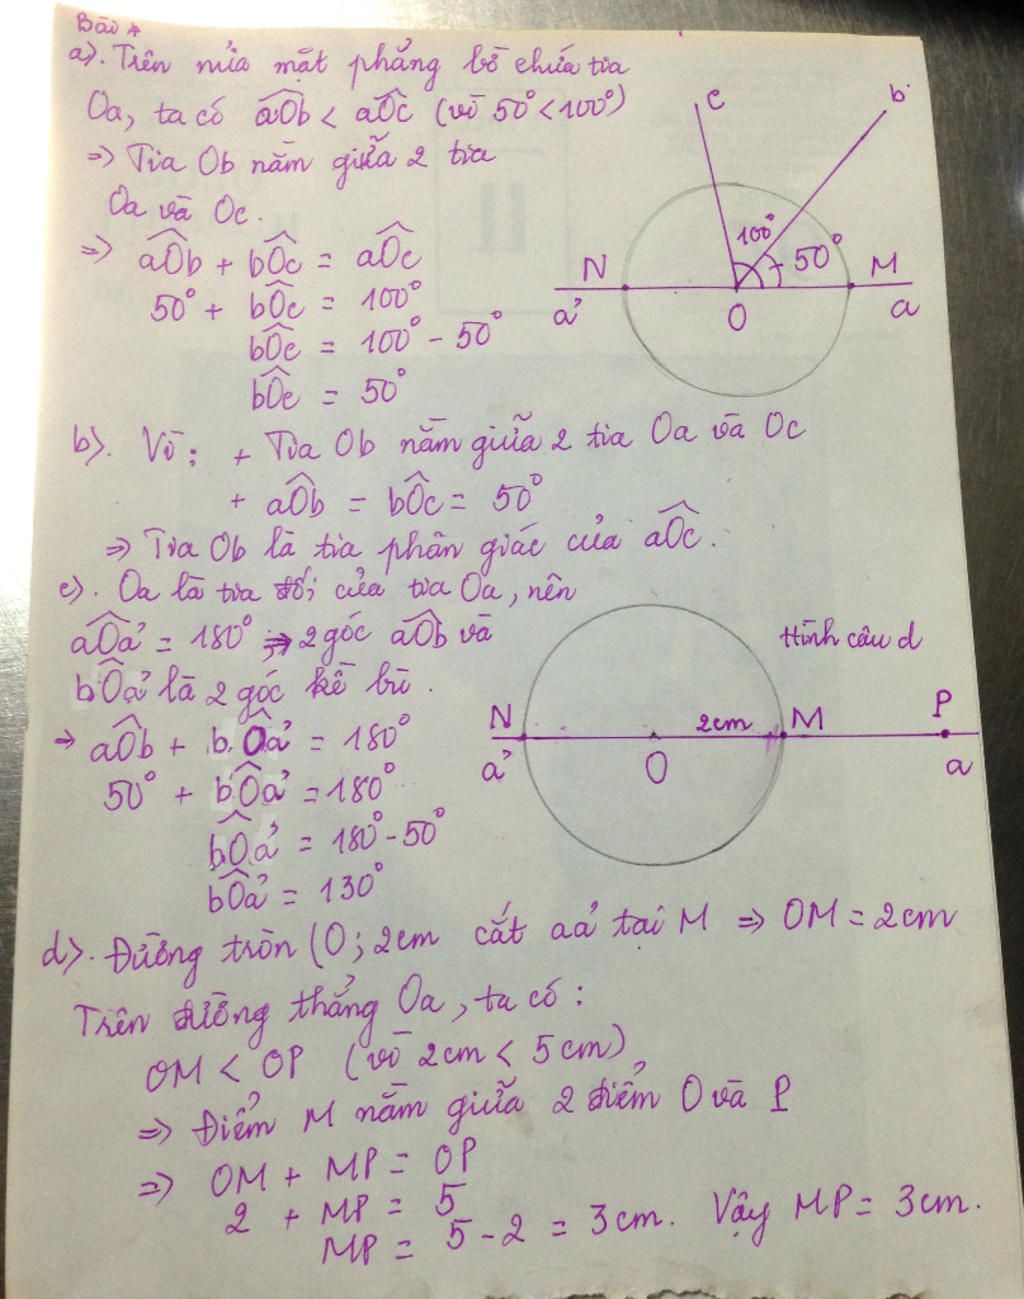 Bài 4
a). Trên nửa mặt phẳng bờ chứa tia
Oa, ta có aÔb < aÔc (vì 50° < 100°)
=> Tia Ob nằm giữa 2 tia
Oa và Oc.
=> aÔb + bÔc = aÔc
50° + bÔc = 100°
bÔc = 100° - 50°
bÔc = 50°
c
b
100°
50°
N
M
a'
O
a
b). Vì: + Tia Ob nằm giữa 2 tia Oa và Oc
+ aÔb = bÔc = 50°
=> Tia Ob là tia phân giác của aÔc.
c). Oa là tia đối của tia Oa, nên
aÔa' = 180° => 2 góc aÔb và
bÔa' là 2 góc kề bù.
=> aÔb + bÔa' = 180°
50° + bÔa' = 180°
bÔa' = 180° - 50°
bÔa' = 130°
Hình câu d
N
2cm
M
P
a'
O
a
d). Đường tròn (O; 2cm cắt aa' tại M => OM = 2cm
Trên đường thẳng Oa, ta có:
OM < OP (vì 2cm < 5cm)
=> Điểm M nằm giữa 2 điểm O và P
=> OM + MP = OP
2 + MP = 5
MP = 5 - 2 = 3cm. Vậy MP = 3cm.